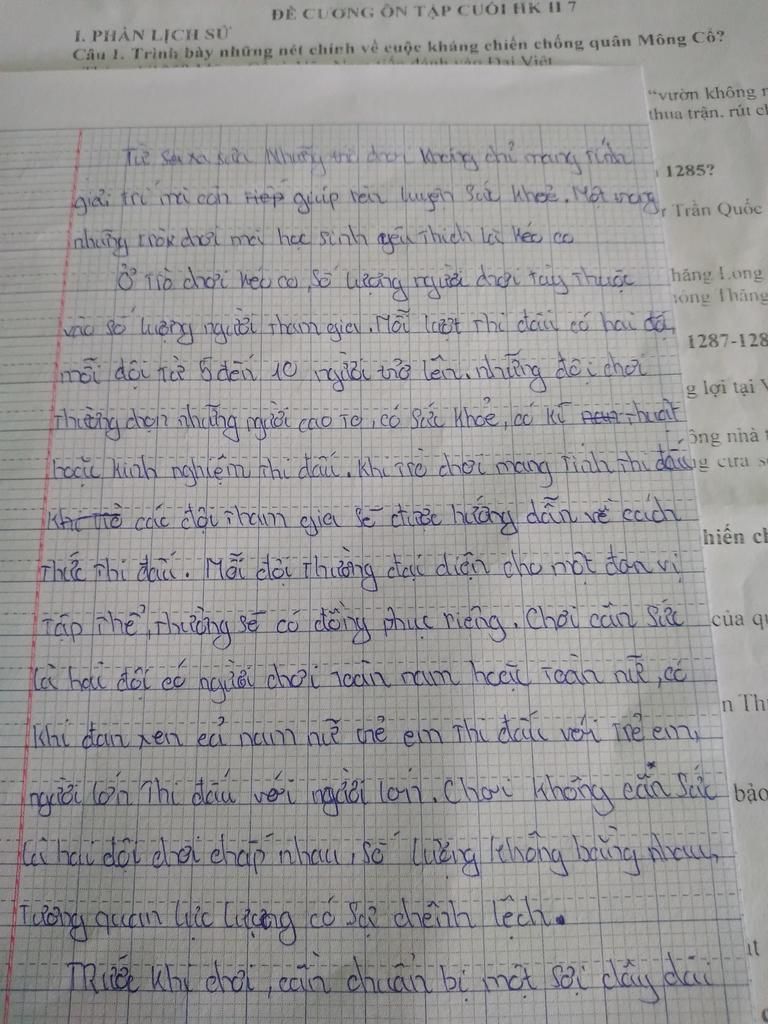 ĐỀ CƯƠNG ÔN TẬP CUỐI HK II 7
I. PHẦN LỊCH SỬ
Câu 1. Trình bày những nét chính về cuộc kháng chiến chống quân Mông Cổ?
"vườn không
thua trận, rút
1285?
Trần Quốc
Thăng Long
1287-128
g lợi tại
ông nhà
hiến
của
bảo
Từ xa xưa Những trò chơi không chỉ mang tính
giải trí mà còn giúp rèn luyện sức khoẻ. Một trong
những trò chơi mà học sinh yêu thích là kéo co
Ở trò chơi kéo co, số lượng người chơi tùy thuộc
vào số lượng người tham gia. Mỗi lượt thi đấu có hai đội,
mỗi đội từ 5 đến 10 người trở lên. những đội chơi
thường chọn những người cao to, có sức khoẻ, có kĩ thuật
hoặc kinh nghiệm thi đấu. khi trò chơi mang tính thi đấu
các đội tham gia sẽ được hướng dẫn về cách
thức thi đấu. Mỗi đội thường đại diện cho một đơn vị
tập thể, thường sẽ có đồng phục riêng. Chơi cân sức
là hai đội có người chơi toàn nam hoặc toàn nữ, có
khi đan xen cả nam nữ trẻ em thi đấu với trẻ em,
người lớn thi đấu với người lớn. Chơi không cân sức
là hai đội chơi chấp nhau, số lượng không bằng nhau,
tương quan lực lượng có sự chênh lệch.
Trước khi chơi, cần chuẩn bị một sợi dây dài